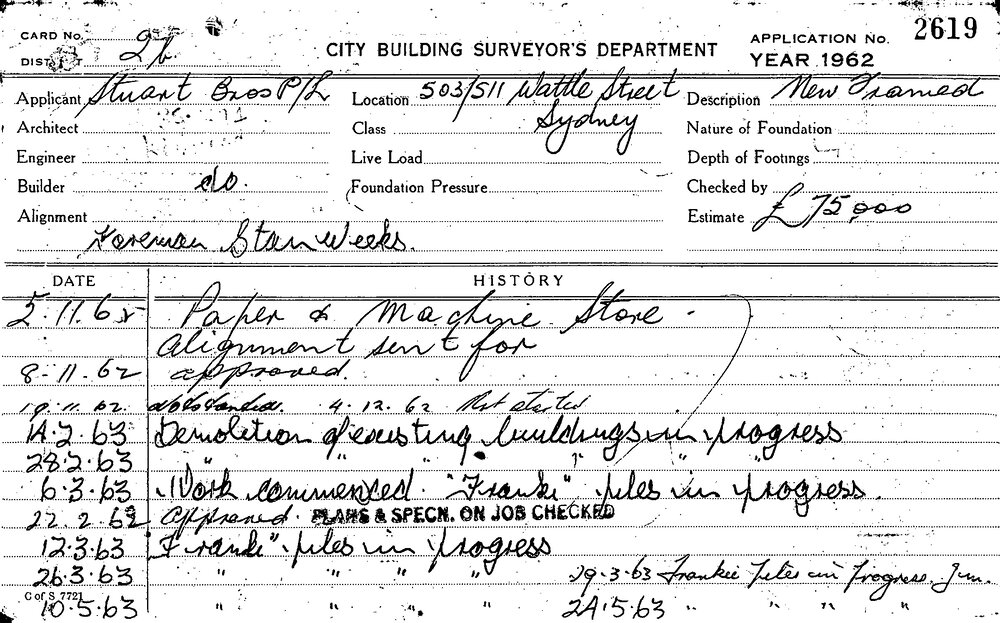 CARD No.
2b
CITY BUILDING SURVEYOR'S DEPARTMENT
APPLICATION No. 2619
YEAR 1962
DISTRICT
Applicant Stuart Bros P/L
Location 503/511 Wattle Street Sydney
Description New Framed
Architect
Class
Nature of Foundation
Engineer
Live Load
Depth of Footings
Builder do.
Foundation Pressure
Checked by
Alignment
Estimate £75,000
Foreman Stan Weeks.
DATE
HISTORY
5.11.62 Paper & Machine Store.
alignment sent for
8.11.62 approved.
19.11.62. Not started. 4.12.62 Not started
14.2.63 Demolition of existing buildings in progress
28.2.63 " " " " " "
6.3.63 Work commenced. "Franki" piles in progress.
22.2.62 Approved. PLANS & SPECN. ON JOB CHECKED
12.3.63 "Franki" piles in progress
26.3.63 " " " " 29.3.63 Frankie Piles in Progress. J.m.
C of S 7721
10.5.63 " " " " 24.5.63 " " "